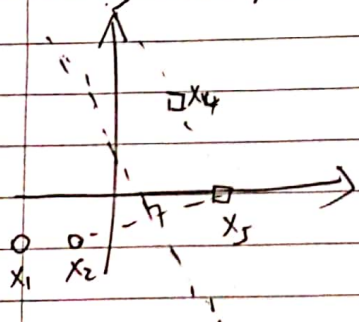 x4
x5
x1 x2